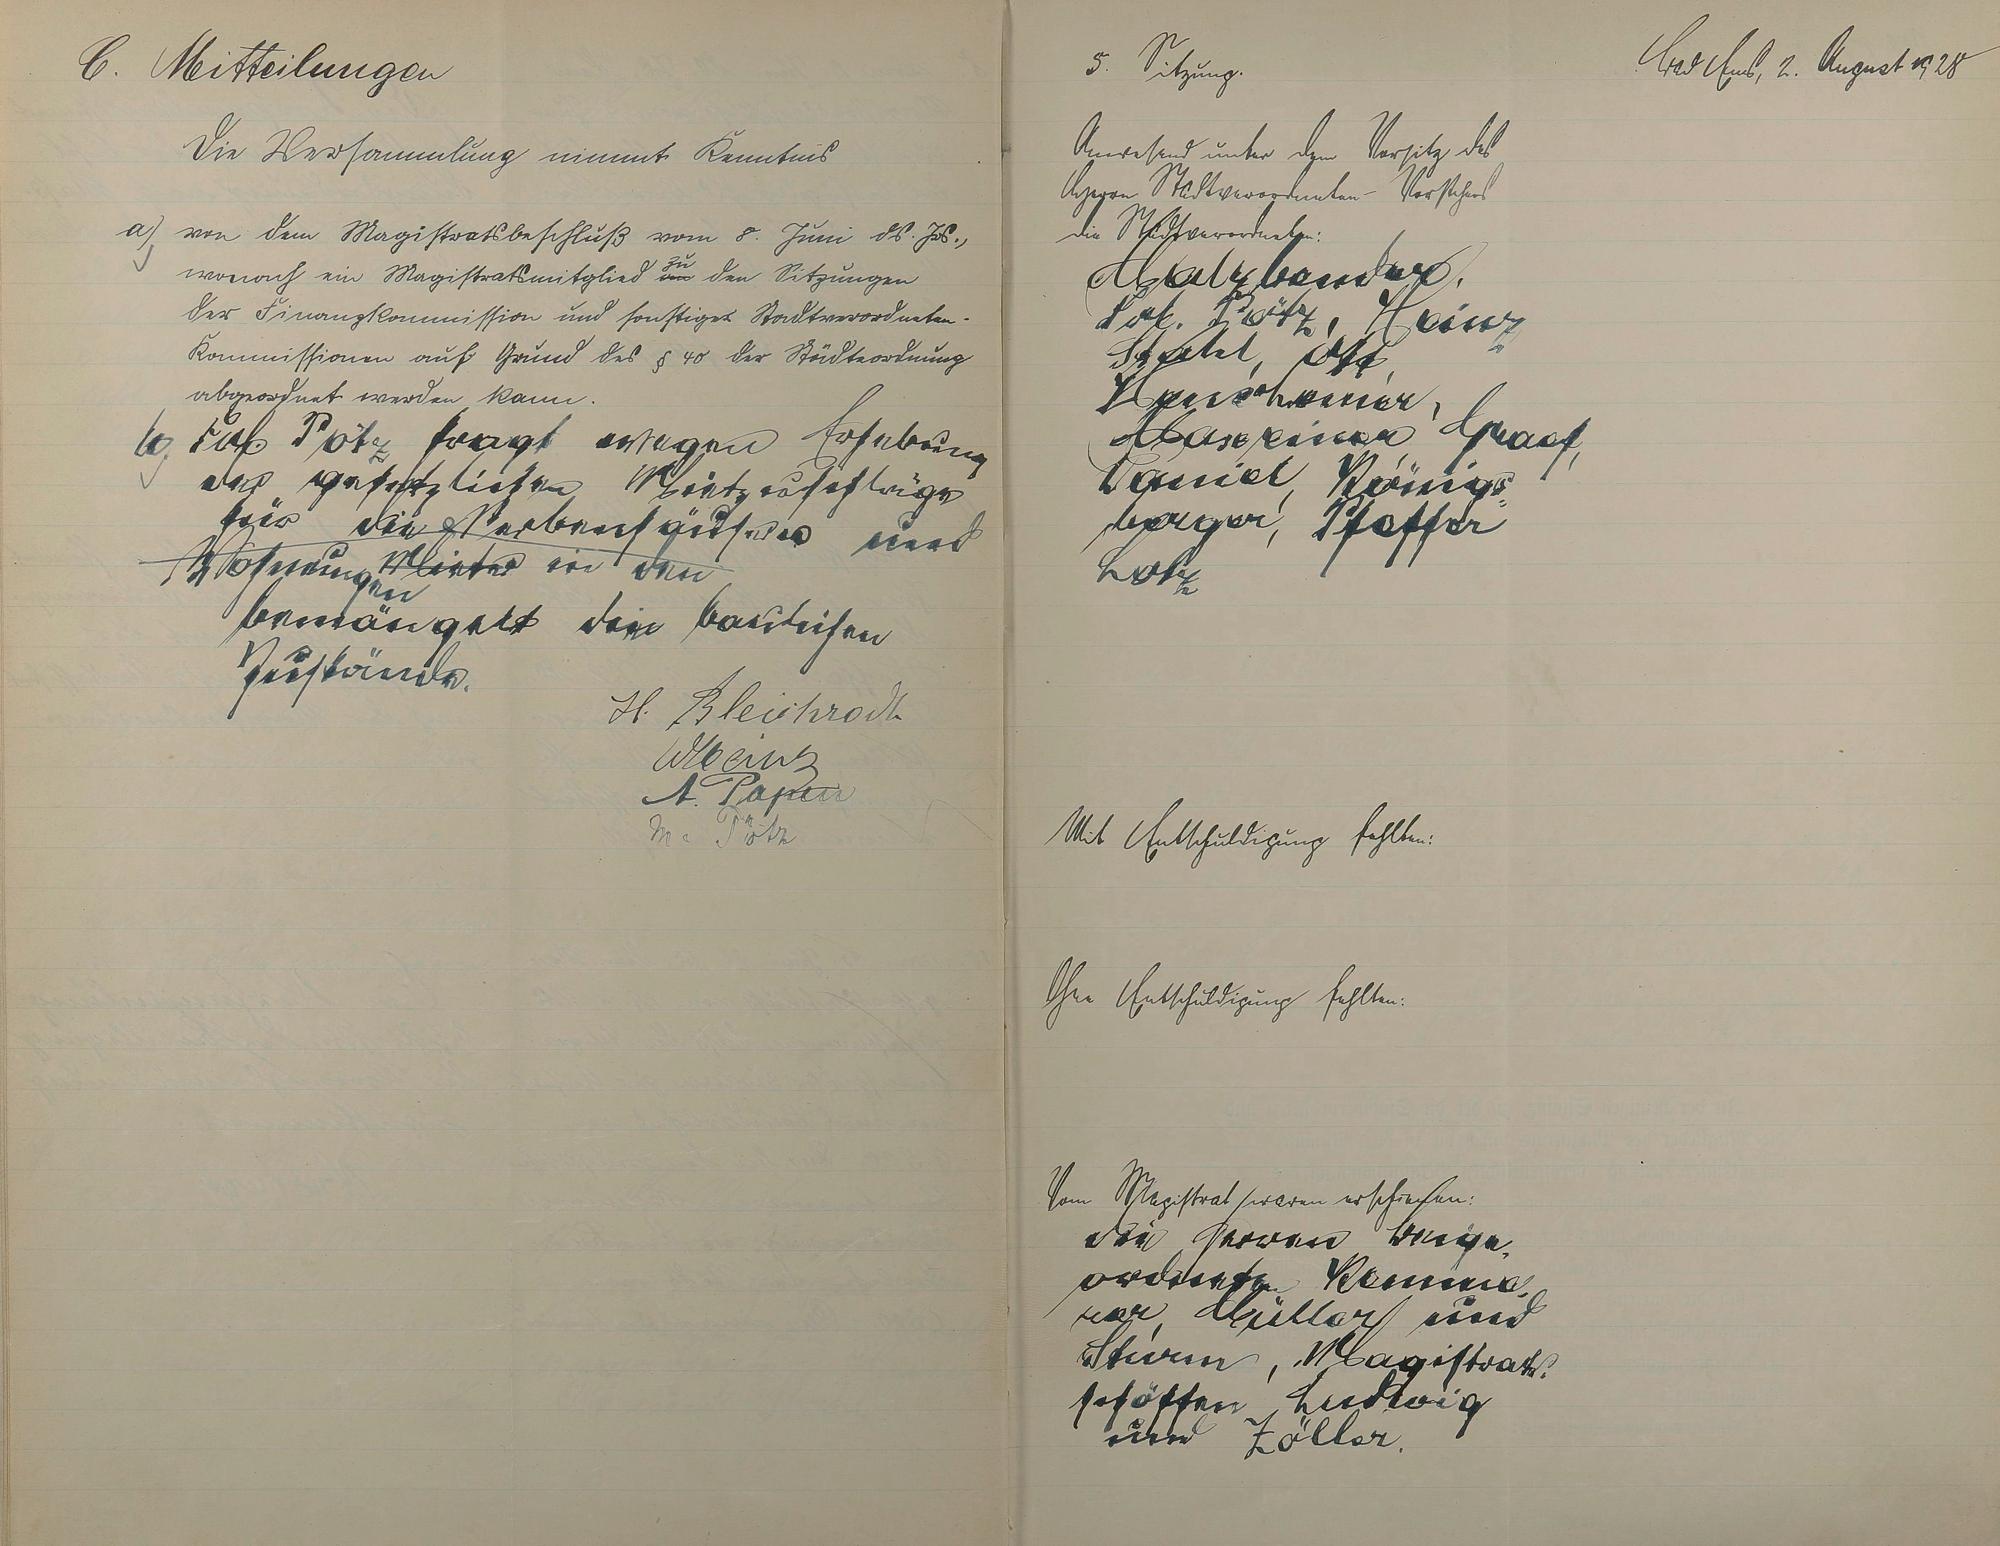 C. Mitteilungen
Die Versammlung nimmt Kenntnis
a) von dem Magistratsbeschluß vom 8. Juni ds. Js.,
wonach ein Magistratsmitglied zu den Sitzungen
der Finanzkommission und sonstiger Stadtverordneten-
Kommissionen auf Grund des § 40 der Städteordnung
abgeordnet werden kann.
b) Pötz fragt wegen Erhebung
der gesetzlichen Mietzuschläge
für die und
Wohnungen Mieter in den
bemängelt die baulichen
Zustände.
H. Bleichrodt
Heinz
A. Papen
M. Pötz
5. Sitzung.
Bad Ems, 2. August 1928
Anwesend unter dem Vorsitz des
Herrn Stadtverordneten-Vorstehers
die Stadtverordneten:
Malzbender,
Pötz, Heinz
Ott,
Graef,
Daniel, Königs-
berger, Pfeffer
Lotz
Mit Entschuldigung fehlten:
Ohne Entschuldigung fehlten:
Vom Magistrat waren erschienen:
die Herren Beige-
ordnete Kemme-
rer, Müller und
Sturm, Magistrats-
schöffen Ludwig
und Zöller.